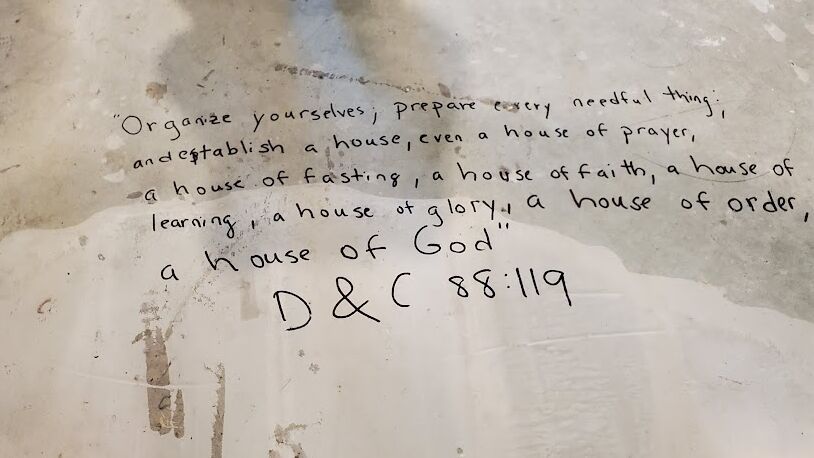 "Organize yourselves; prepare every needful thing;
and establish a house, even a house of prayer,
a house of fasting, a house of faith, a house of
learning, a house of glory, a house of order,
a house of God"
D & C 88:119